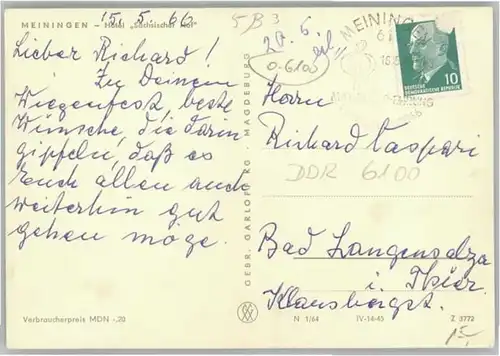 15. 5. 66
MEININGEN – Hotel „Sächsischer Hof"
Lieber Richard!
Zu Deinem
Wiegenfest beste
Wünsche, die darin
gipfeln, daß es
Euch allen auch
weiterhin gut
gehen möge.
Verbraucherpreis MDN -,20
GEBR. GARLOFF KG · MAGDEBURG
5B3
20. 6.
0-6100
MEININGEN
10
DEUTSCHE
DEMOKRATISCHE REPUBLIK
Herrn
Richard Caspari
DDR 6100
Bad Langensalza
i. Thür.
Klausbergst.
N 1/64 IV-14-45 Z 3772
15,-